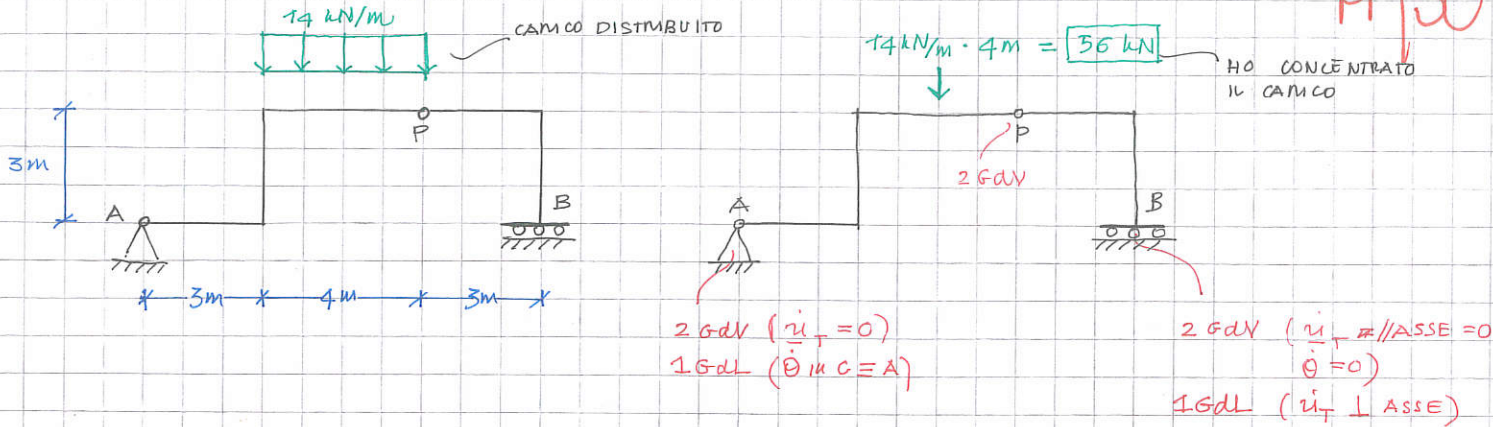 14 kN/m
CARICO DISTRIBUITO
3m
P
A
B
3m
4m
3m
14kN/m · 4m = 56 kN
HO CONCENTRATO
IL CARICO
P
2 GdV
A
B
2 GdV (u̇_T = 0)
1 GdL (θ̇ in C ≡ A)
2 GdV (u̇_T //ASSE = 0
θ̇ = 0)
1 GdL (u̇_T ⊥ ASSE)